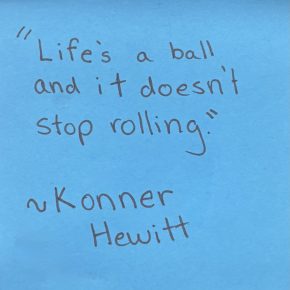 "Life's a ball
and it doesn't
stop rolling."
~Konner
Hewitt